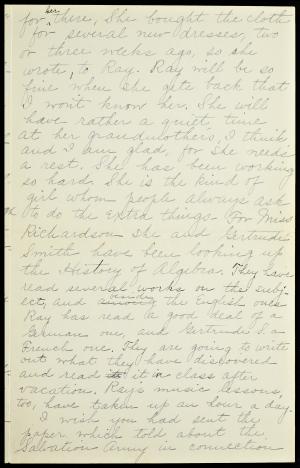 for her there, She bought the cloth
for several new dresses, two
or three weeks ago, so she
wrote, to Ray. Ray will be so
fine when she gets back that
I won't know her. She will
have rather a quiet time
at her grandmothers, I think
and I am glad, for she needs
a rest. She has been working
so hard. She is the kind of
girl whom people always ask
to do the extra things. For Miss
Richardson she and Gertrude
Smith have been looking up
the History of Algebra. They have
read several works on the subj-
ect, and besides the English ones
Ray has read a good deal of a
German one, and Gertrude S. a
French one. They are going to write
out what they have discovered
and read it in class after
vacation. Ray's music lessons,
too, have taken up an hour a day.
I wish you had sent the
paper which told about the
Salvation Army in connection